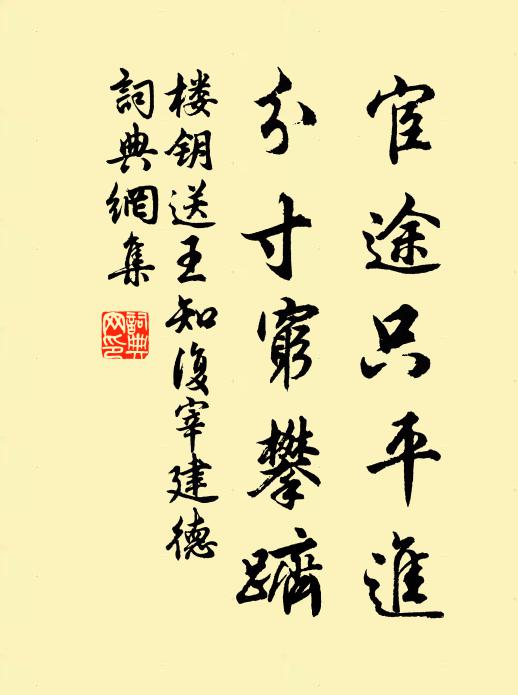 宦途只平進
分寸窮攀躋
楼钥送王知復宰建德
詞典網集
詞典网印